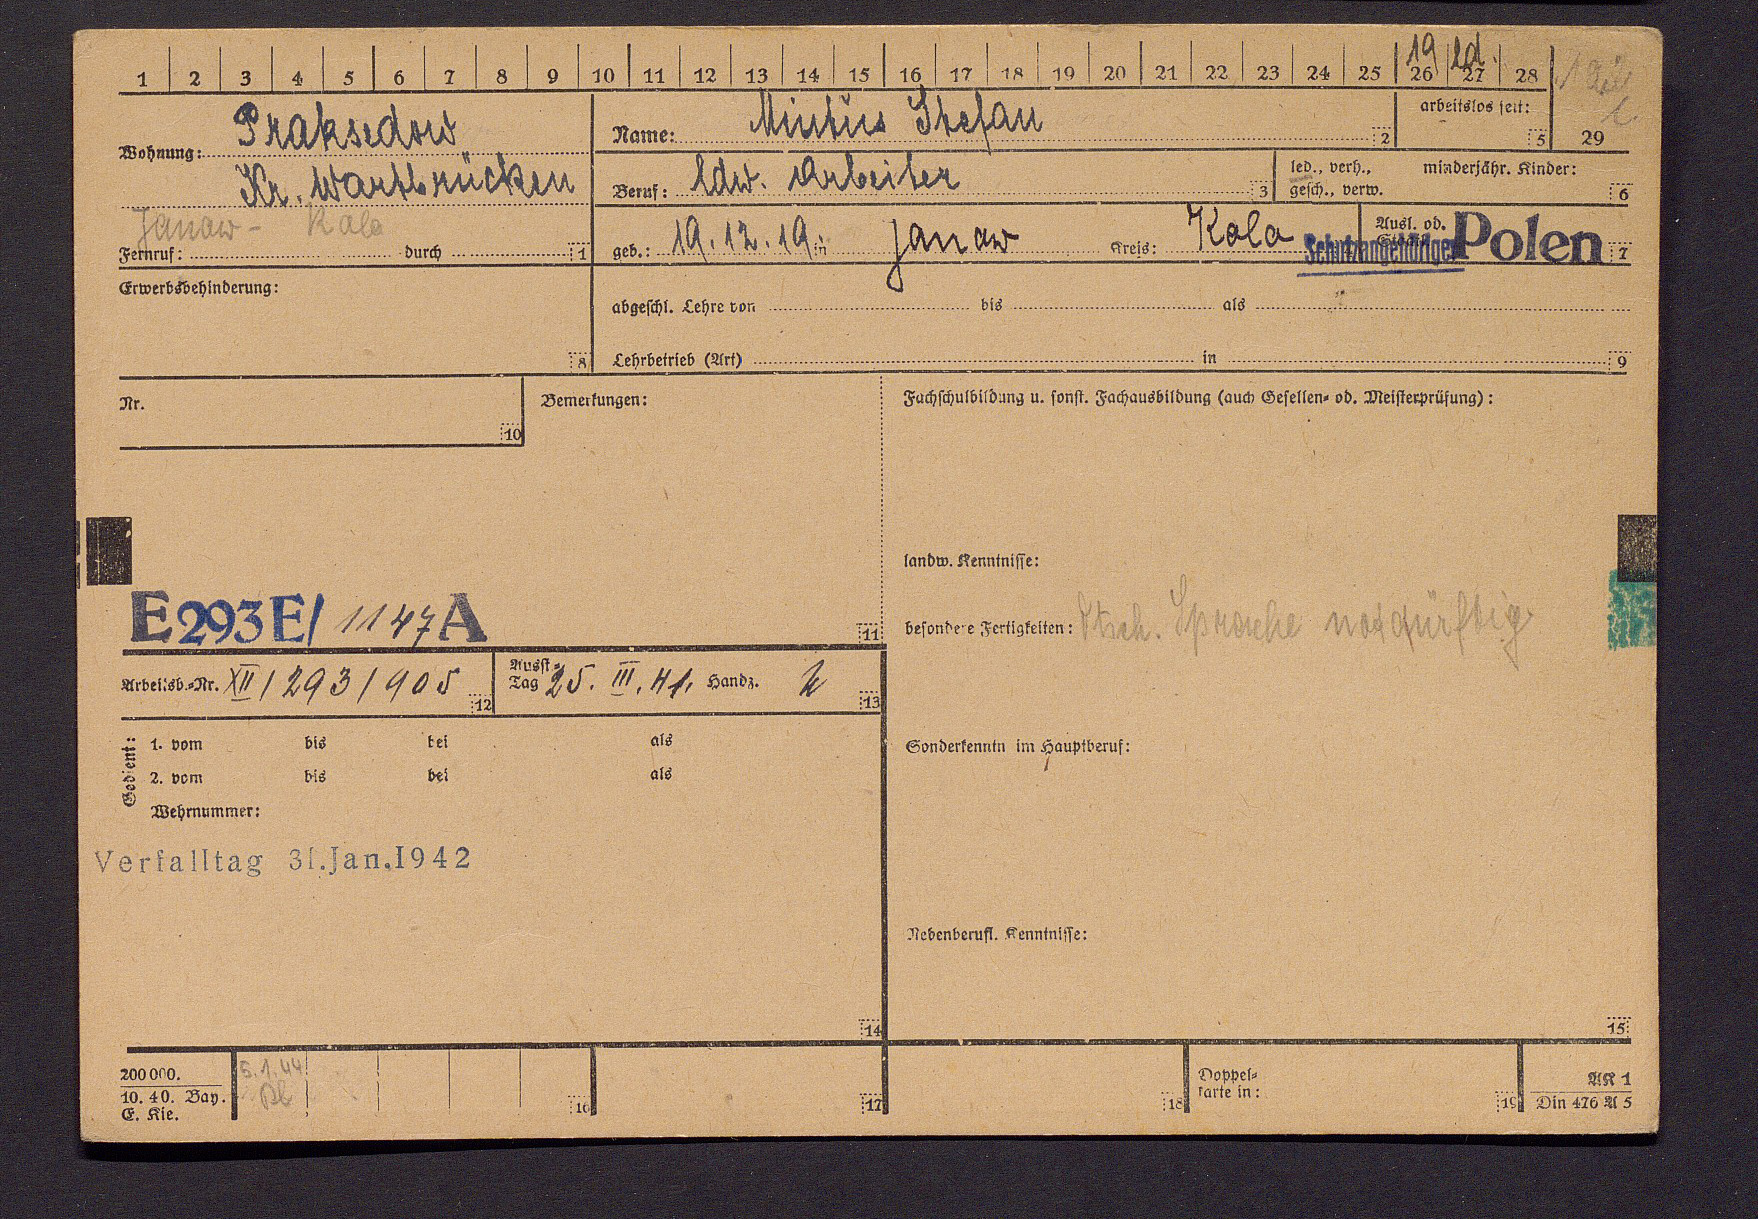 19 led.
1 2 3 4 5 6 7 8 9 10 11 12 13 14 15 16 17 18 19 20 21 22 23 24 25 26 27 28
29
Wohnung: Praksedow
Kr. Wartbrücken
Janow - Kolo
Fernruf: durch 1
Name: Mintus Stefan 2
arbeitslos seit: 5
Beruf: ldw. Arbeiter 3
led., verh., gesch., verw.
minderjähr. Kinder: 6
geb.: 19.12.19 in Janow Kreis: Kolo
Ausl. od. Staatl.
Schutzangehöriger Polen 7
Erwerbsbehinderung: 8
abgeschl. Lehre von bis als
Lehrbetrieb (Art) in 9
Nr. 10
Bemerkungen:
E293E/ 1147 A 11
Fachschulbildung u. sonst. Fachausbildung (auch Gesellen- od. Meisterprüfung):
landw. Kenntnisse:
besondere Fertigkeiten: dtsch. Sprache notdürftig
Arbeitsb.-Nr. XII/293/905 12
Ausst.-Tag 25. III. 41. Handz. 13
Gedient:
1. vom bis bei als
2. vom bis bei als
Wehrnummer:
Verfalltag 31.Jan.1942
14
Sonderkenntn im Hauptberuf:
Nebenberufl. Kenntnisse:
15
200 000.
10. 40. Bay.
E. Kie.
5.1.44
16
17
18
Doppel-
karte in: 19
AK 1
Din 476 A 5